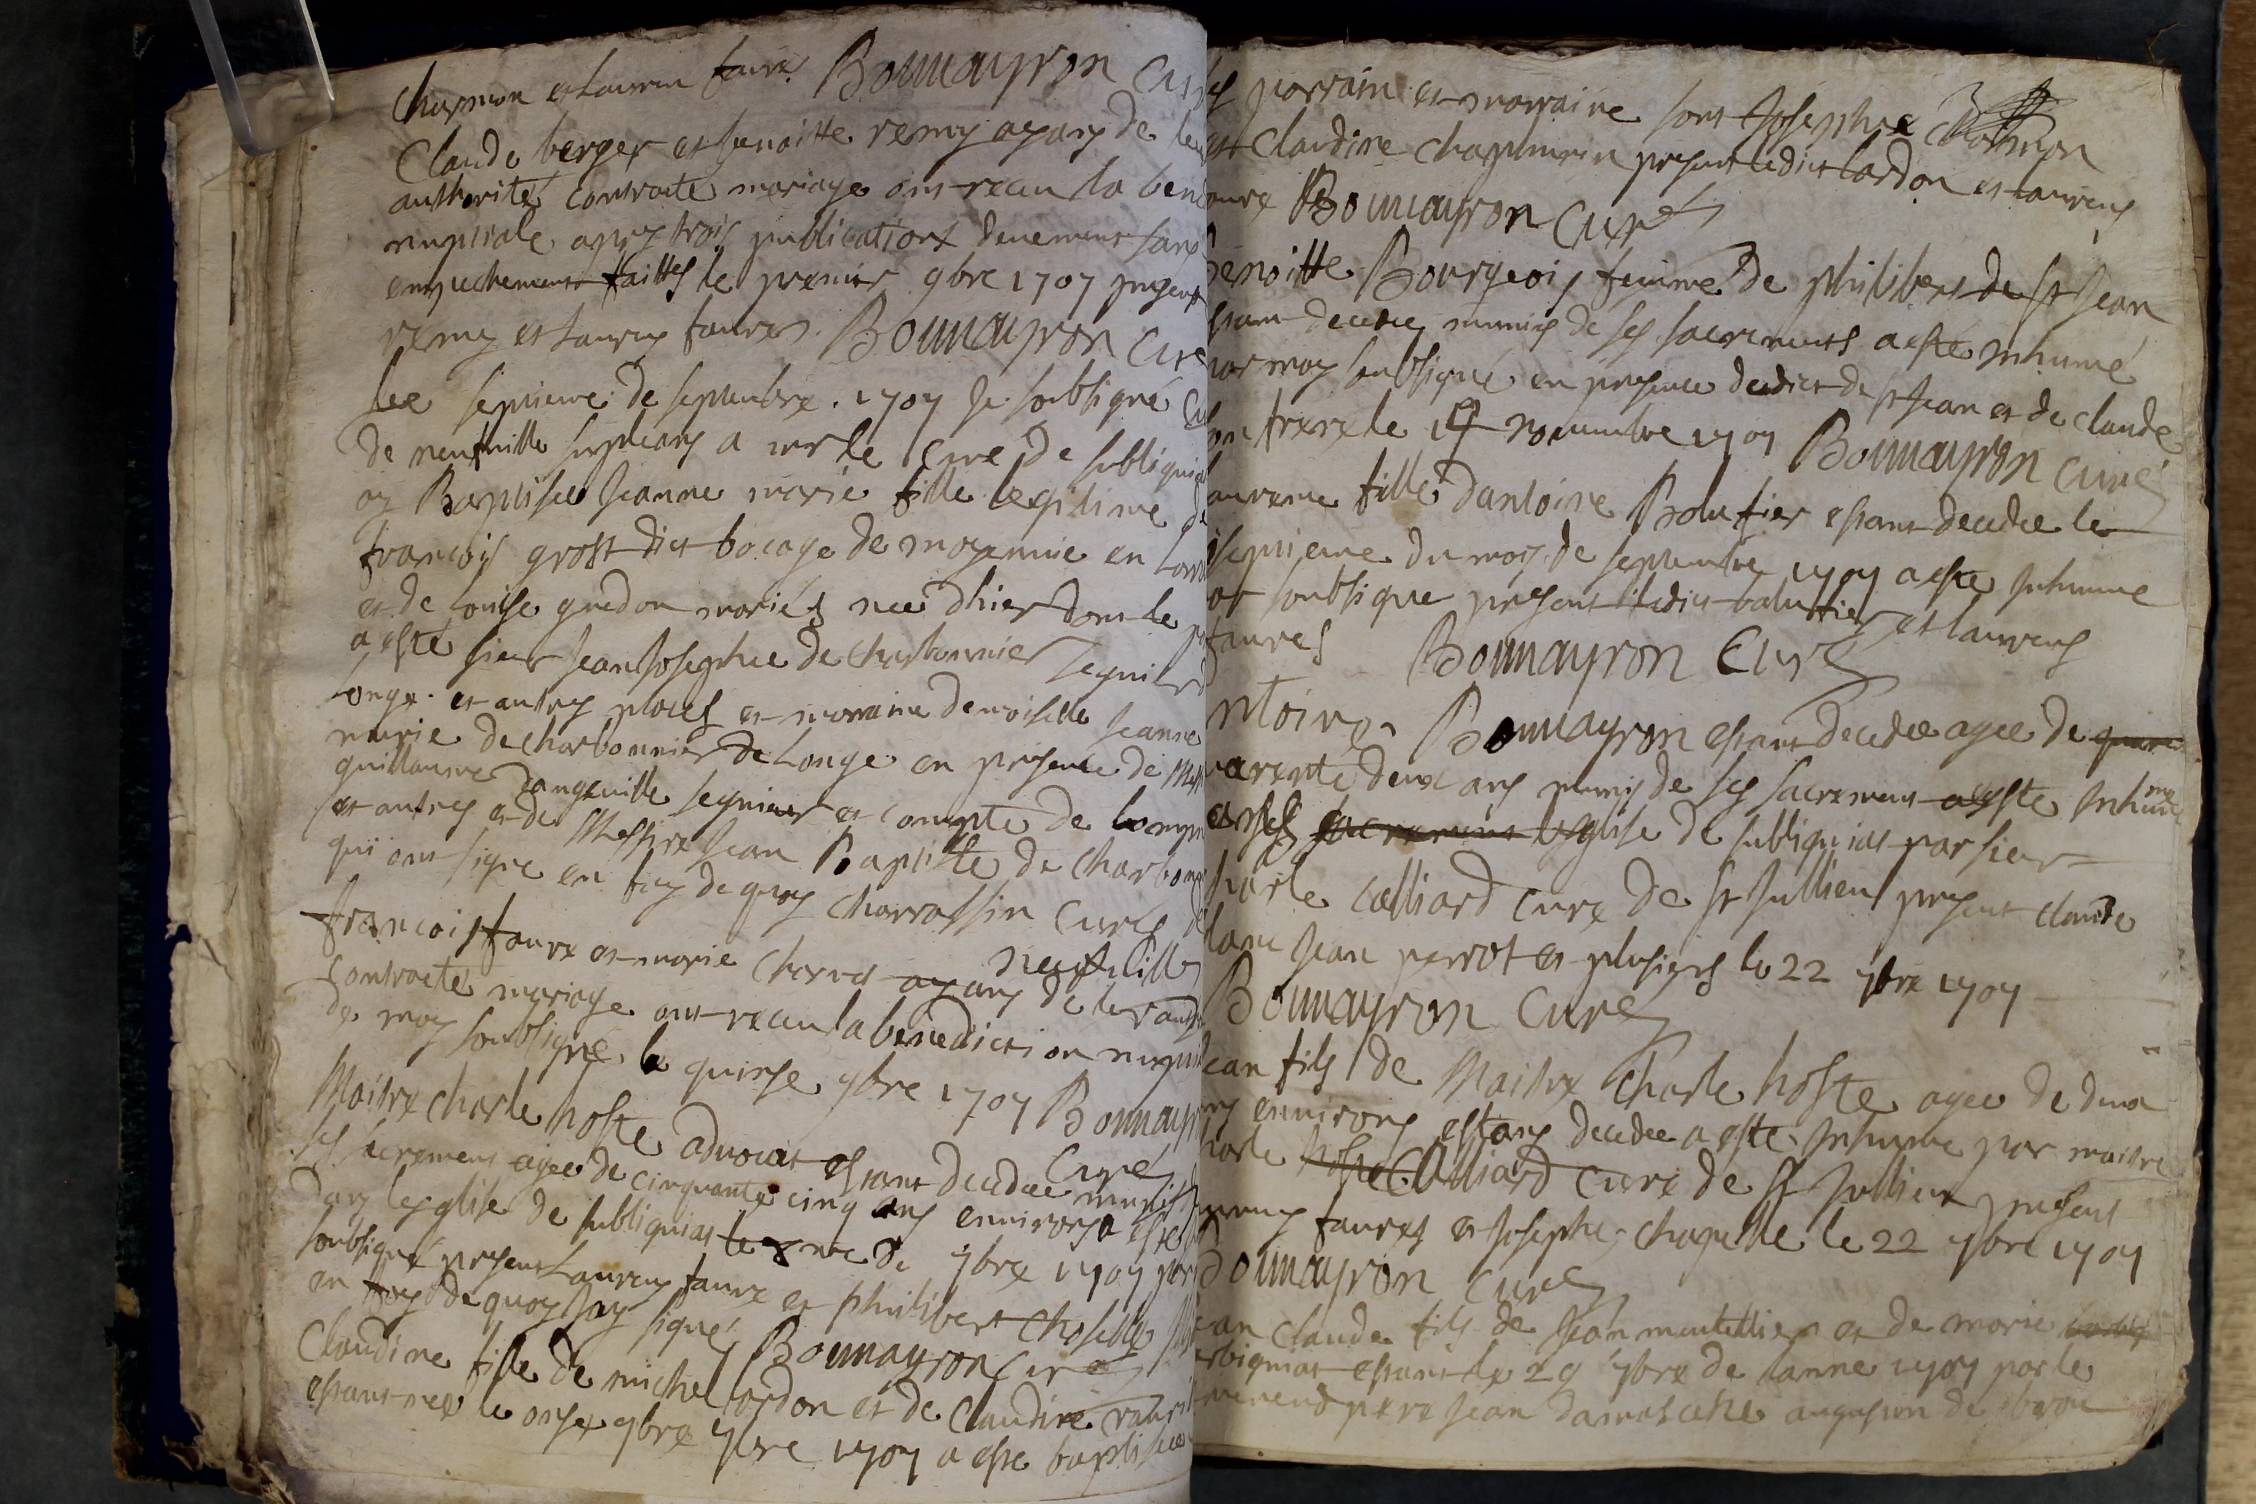 charmon et Laurin faure Bonnayron Cur
Claude berger et benoitte remy ayans de leur
authorité contracte mariage ont receu la bene
nuptiale apres trois publications deuement sans
empechement faittes le premier 9bre 1707 present
remy et Laurens faures. Bonnayron Cure
Lee septieme de septembre . 1707 Je soubsigné Cu
de neufville supleant a mr le cure de subligni
ay Baptisee Jeanne marie fille legitime de
francois grost dict bocage de moyennie en Lorr
et de Louise guedon mariés nee dhier dont le p
a este sieur Jean Josephe de charbonnier segnieur d
Longe et autres places et marraine demoiselle Jeanne
marie de charbonnier de Longe en presence de Mes
guillaume dangeville segnieur et compte de Lompn
et autres et de Messire Jean Baptiste de charbonn
qui ont signe en foy de quoy charrassin curé de
neufville
francois faure et marie charvet ayans de leur auth
contracte mariage ont receu la benediction nuptia
de moy soubsigne le quinse 9bre 1707 Bonnayr
Curé
Maitre charle hoste advocat estant decedee munis d
ses sacremens agee de cinquante cinq ans environ a este
dans leglise de subligniat le x me de 9bre 1707 par
soubsigné present Laurens faure et philibert choselle
en foy de quoy Jay signé Bonnayron Curé
Claudine fille de michel Lardon et de Claudine
estant nee le onse 9bre 9bre 1707 a este baptisee
parrain et marraine sont Josephe Charmon
et Claudine chapluisin present ledict Lardon et Laurens
aure Bonnayron Curé
Benoitte Bourgeois femme de philibert de st Jean
estant decedee munies de ses sacrements a este inhumé
par moy soubsigné en presence dudict de st Jean et de claude
son frere le 17 novembre 1707 Bonnayron Curé
Laurence fille dantoine Balufier estant decedee le
septieme du mois de septembre 1707 a este inhume
par soubsigne present ledict balufier et Laurens
faures Bonnayron Curé
ntoine Bonnayron estant decedee agee de quara
uarente deux ans munis de ses sacremens a este inhumé
sacremens leglise de subligniat par sieur
harle Calliard cure de st Jullien present claude
lanc Jean perrot et plusieurs le 22 9bre 1707
Bonnayron Curé
ean fils de Maitre charle hoste agee de deux
ans environs estans decedee a este inhume par maitre
harle hoste Calliard cure de st Jullien present
aurens faures et Josephe chapelle le 22 9bre 1707
Bonnayron Curé
ean Claude fils de Jean montellier et de marie
estant le 29 9bre de lanne 1707 par le
reverend pere Jean damascene augustin de